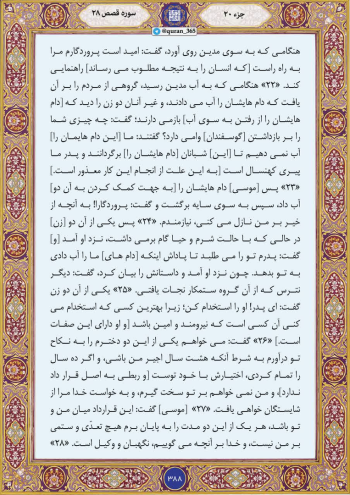 جزء ۲۰
سوره قصص ۲۸
@quran_365
هنگامی که به سوی مدین روی آورد، گفت: امید است پروردگارم مرا
به راه راست [که انسان را به نتیجه مطلوب می رساند] راهنمایی
کند. «۲۲» هنگامی که به آب مدین رسید، گروهی از مردم را بر آن
یافت که دام هایشان را آب می دادند، و غیر آنان دو زن را دید که [دام
هایشان را از رفتن به سوی آب] بازمی دارند؛ گفت: چه چیزی شما
را بر بازداشتن [گوسفندان] وامی دارد؟ گفتند: ما [این دام هایمان را]
آب نمی دهیم تا [این] شبانان [دام هایشان را] برگردانند و پدر ما
پیری کهنسال است [به این علت از انجام این کار معذور است.].
«۲۳» پس [موسی] دام هایشان را [به جهت کمک کردن به آن دو]
آب داد، سپس به سوی سایه برگشت و گفت: پروردگارا! به آنچه از
خیر بر من نازل می کنی، نیازمندم. «۲۴» پس یکی از آن دو [زن]
در حالی که با حالت شرم و حیا گام برمی داشت، نزد او آمد [و]
گفت: پدرم تو را می طلبد تا پاداش اینکه [دام های] ما را آب دادی
به تو بدهد. چون نزد او آمد و داستانش را بیان کرد، گفت: دیگر
نترس که از آن گروه ستمکار نجات یافتی. «۲۵» یکی از آن دو زن
گفت: ای پدر! او را استخدام کن؛ زیرا بهترین کسی که استخدام می
کنی آن کسی است که نیرومند و امین باشد [و او دارای این صفات
است.] «۲۶» گفت: می خواهم یکی از این دو دخترم را به نکاح
تو درآورم به شرط آنکه هشت سال اجیر من باشی، و اگر ده سال
را تمام کردی، اختیارش با خود توست [و ربطی به اصل قرار داد
ندارد]، و من نمی خواهم بر تو سخت گیرم، و به خواست خدا مرا از
شایستگان خواهی یافت. «۲۷» [موسی] گفت: این قرارداد میان من و
تو باشد، هر یک از این دو مدت را به پایان برم هیچ تعدّی و ستمی
بر من نیست، و خدا بر آنچه می گوییم، نگهبان و وکیل است. «۲۸»
۳۸۸